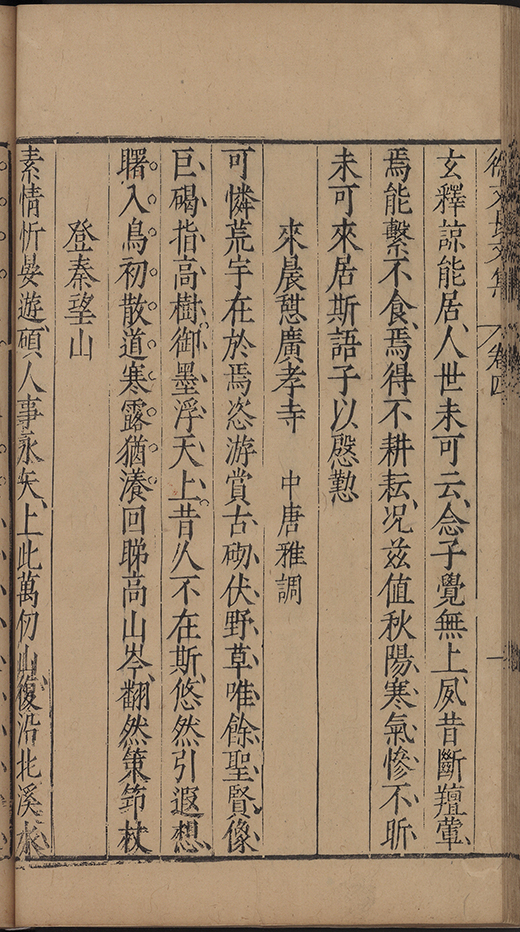 徐文長文集 卷四 一
玄釋諒能居人世未可云念子覺無上夙昔斷羶葷
焉能繫不食焉得不耕耘况兹值秋陽寒氣慘不昕
未可來居斯語子以慇懃
來晨憇廣孝寺 中唐雅調
可憐荒宇在於焉恣游賞古砌伏野草唯餘聖賢像
巨碣指高樹御墨浮天上昔人不在斯悠然引遐想
曙入鳥初散道寒露猶瀼回睇高山岑翻然策笻杖
登秦望山
素情忻晏遊碩人事永矢上此萬仞山復沿北溪水